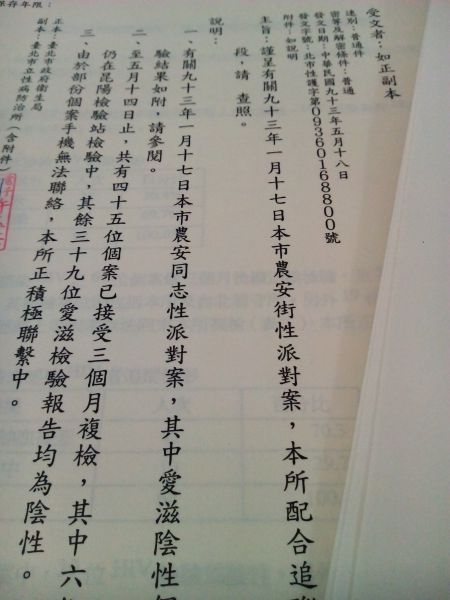 保存年限：
受文者：如正副本
速別：普通件
密等及解密條件：普通
發文日期：中華民國九十三年五月十八日
發文字號：北市性護字第09360168800號
附件：如說明
主旨：謹呈有關九十三年一月十七日本市農安街性派對案，本所配合追
段，請　查照。
說明：
一、有關九十三年一月十七日本市農安同志性派對案，其中愛滋陰性
驗結果如附，請參閱。
二、至五月十四日止，共有四十五位個案已接受三個月複檢，其中六
仍在昆陽檢驗站檢驗中，其餘三十九位愛滋檢驗報告均為陰性。
三、由於部份個案手機無法聯絡，本所正積極聯繫中。
正本：臺北市政府衛生局
副本：臺北市立性病防治所（含附件）